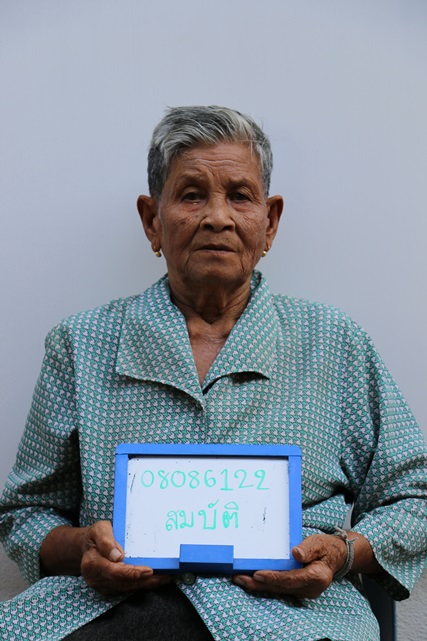 08086122
สมบัติ